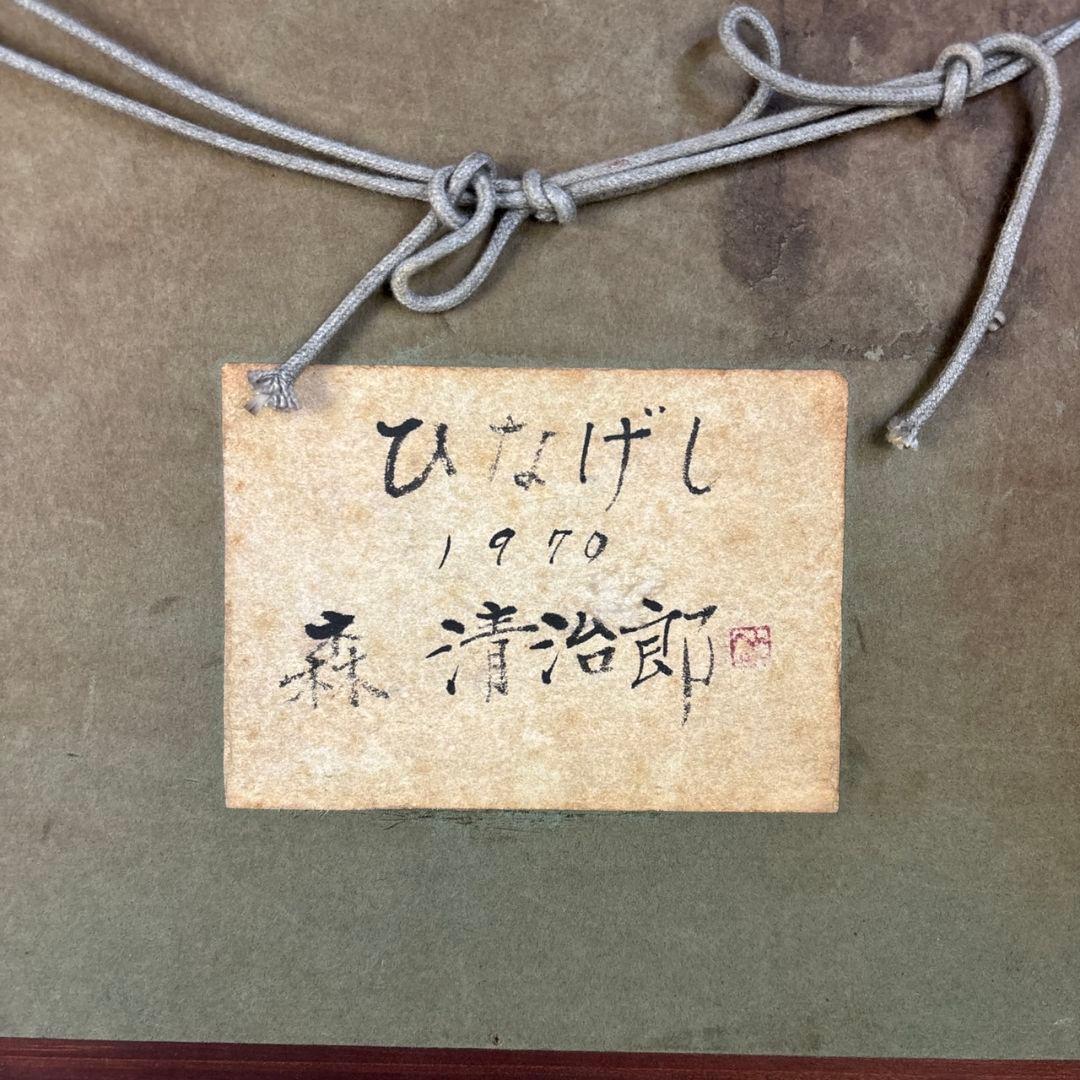 ひなげし
1970
森 清治郎